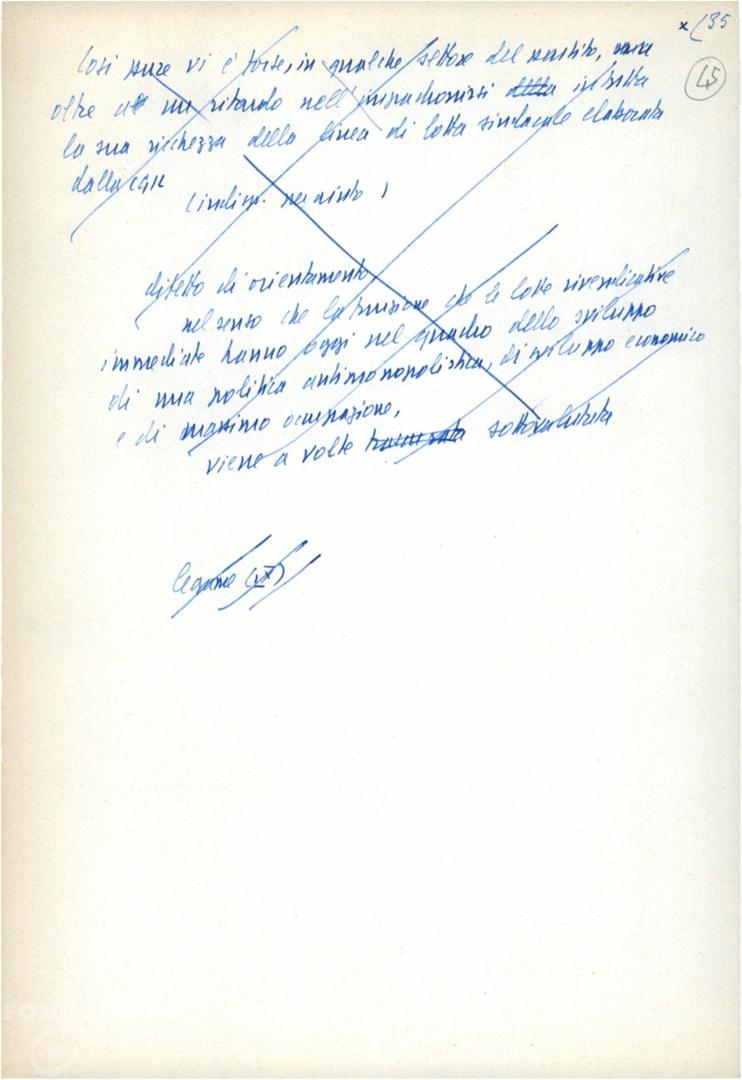 x (35
45
Così pure vi è forse, in qualche settore del partito, pure
oltre a un ritardo nell'impadronirsi della in tutta
la sua ricchezza della linea di lotta sindacale elaborata
dalla CGIL
(indip. per aiuto)
difetto di orientamento
nel senso che la funzione che le lotte rivendicative
immediate hanno oggi nel quadro dello sviluppo
di una politica antimonopolistica, di sviluppo economico
e di massimo occupazione,
viene a volte trascurata sottovalutata
legame (XX)